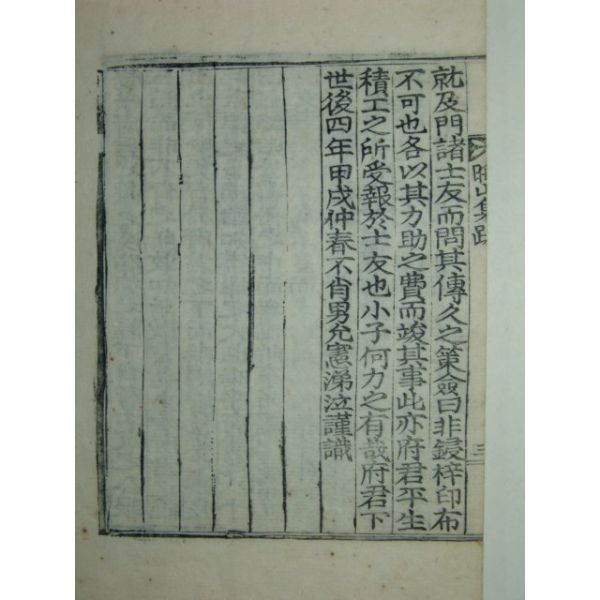 就及門諸士友而問其傳久之策僉曰非鋟梓印布
不可也各以其方助之費而竣其事此亦府君平生
積工之所受報於士友也小子何力之有哉府君下
世後四年甲戌仲春不肖男允憲涕泣謹識
山集跋
三